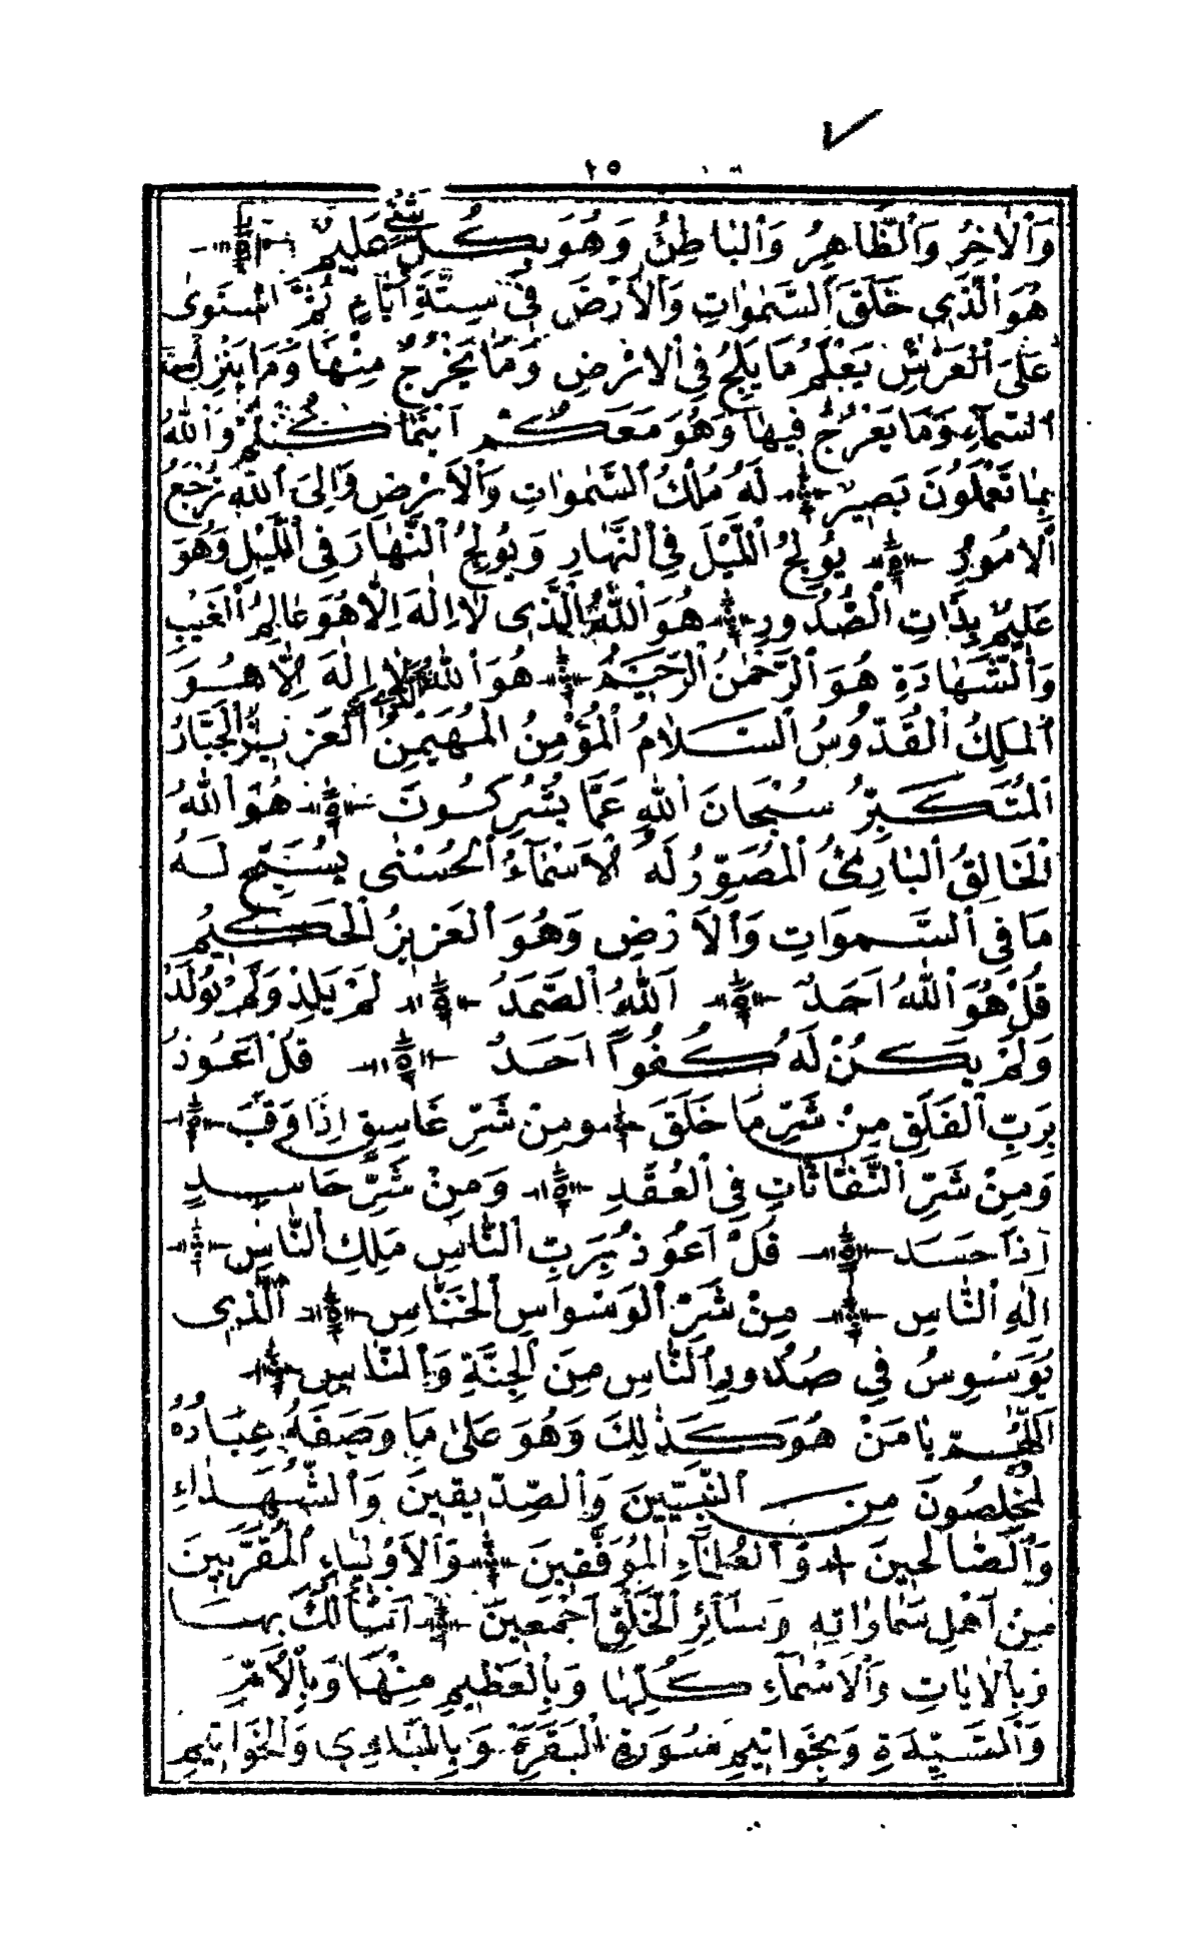 ٢٥
وَٱلْاٰخِرُ وَٱلظَّاهِرُ وَٱلْبَاطِنُ وَهُوَ بِكُلِّ شَيْءٍ عَلِيمٌ
هُوَ ٱلَّذِى خَلَقَ ٱلسَّمٰوَاتِ وَٱلْاَرْضَ فِى سِتَّةِ اَيَّامٍ ثُمَّ ٱسْتَوٰى
عَلَى ٱلْعَرْشِ يَعْلَمُ مَا يَلِجُ فِى ٱلْاَرْضِ وَمَا يَخْرُجُ مِنْهَا وَمَا يَنْزِلُ مِنَ
ٱلسَّمَآءِ وَمَا يَعْرُجُ فِيهَا وَهُوَ مَعَكُمْ اَيْنَمَا كُنْتُمْ وَٱللّٰهُ
بِمَا تَعْمَلُونَ بَصِيرٌ لَهُ مُلْكُ ٱلسَّمٰوَاتِ وَٱلْاَرْضِ وَاِلَى ٱللّٰهِ تُرْجَعُ
ٱلْامُورُ يُولِجُ ٱللَّيْلَ فِى ٱلنَّهَارِ وَيُولِجُ ٱلنَّهَارَ فِى ٱللَّيْلِ وَهُوَ
عَلِيمٌ بِذَاتِ ٱلصُّدُورِ هُوَ ٱللّٰهُ ٱلَّذِى لَا اِلٰهَ اِلَّا هُوَ عَالِمُ ٱلْغَيْبِ
وَٱلشَّهَادَةِ هُوَ ٱلرَّحْمٰنُ ٱلرَّحِيمُ هُوَ ٱللّٰهُ ٱلَّذِى لَا اِلٰهَ اِلَّا هُوَ
ٱلْمَلِكُ ٱلْقُدُّوسُ ٱلسَّلَامُ ٱلْمُؤْمِنُ ٱلْمُهَيْمِنُ ٱلْعَزِيزُ ٱلْجَبَّارُ
ٱلْمُتَكَبِّرُ سُبْحَانَ ٱللّٰهِ عَمَّا يُشْرِكُونَ هُوَ ٱللّٰهُ
ٱلْخَالِقُ ٱلْبَارِئُ ٱلْمُصَوِّرُ لَهُ ٱلْاَسْمَآءُ ٱلْحُسْنٰى يُسَبِّحُ لَهُ
مَا فِى ٱلسَّمٰوَاتِ وَٱلْاَرْضِ وَهُوَ ٱلْعَزِيزُ ٱلْحَكِيمُ
قُلْ هُوَ ٱللّٰهُ اَحَدٌ اَللّٰهُ ٱلصَّمَدُ لَمْ يَلِدْ وَلَمْ يُولَدْ
وَلَمْ يَكُنْ لَهُ كُفُواً اَحَدٌ قُلْ اَعُوذُ
بِرَبِّ ٱلْفَلَقِ مِنْ شَرِّ مَا خَلَقَ وَمِنْ شَرِّ غَاسِقٍ اِذَا وَقَبَ
وَمِنْ شَرِّ ٱلنَّفَّاثَاتِ فِى ٱلْعُقَدِ وَمِنْ شَرِّ حَاسِدٍ
اِذَا حَسَدَ قُلْ اَعُوذُ بِرَبِّ ٱلنَّاسِ مَلِكِ ٱلنَّاسِ
اِلٰهِ ٱلنَّاسِ مِنْ شَرِّ ٱلْوَسْوَاسِ ٱلْخَنَّاسِ ٱلَّذِى
يُوَسْوِسُ فِى صُدُورِ ٱلنَّاسِ مِنَ ٱلْجِنَّةِ وَٱلنَّاسِ
اَللّٰهُمَّ يَا مَنْ هُوَ كَذٰلِكَ وَهُوَ عَلٰى مَا وَصَفَهُ عِبَادُهُ
ٱلْمُخْلِصُونَ مِنَ ٱلنَّبِيِّينَ وَٱلصِّدِّيقِينَ وَٱلشُّهَدَاءِ
وَٱلصَّالِحِينَ وَٱلْعُلَمَآءِ ٱلْمُوَفَّقِينَ وَٱلْاَوْلِيَاءِ ٱلْمُقَرَّبِينَ
مِنْ اَهْلِ سَمَاوَاتِهِ وَسَآئِرِ ٱلْخَلْقِ اَجْمَعِينَ اَسْأَلُكَ بِهَا
وَبِٱلْاٰيَاتِ وَٱلْاَسْمَآءِ كُلِّهَا وَبِٱلْعَظِيمِ مِنْهَا وَبِٱلْاُمِّ
وَٱلسَّيِّدَةِ وَبِخَوَاتِيمِ سُورَةِ ٱلْبَقَرَةِ وَبِٱلْمَبَادِى وَٱلْخَوَاتِيمِ